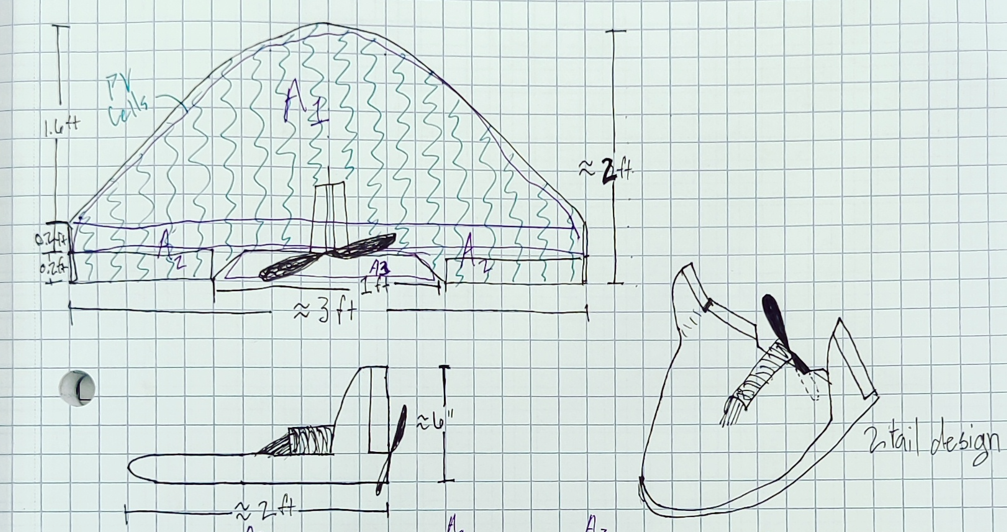 PV
Cells
A1
1.6ft
≈ 2ft.
0.2ft
0.2ft
A2
A2
A3
1ft
≈ 3ft
≈6"
≈ 2ft
2 tail design